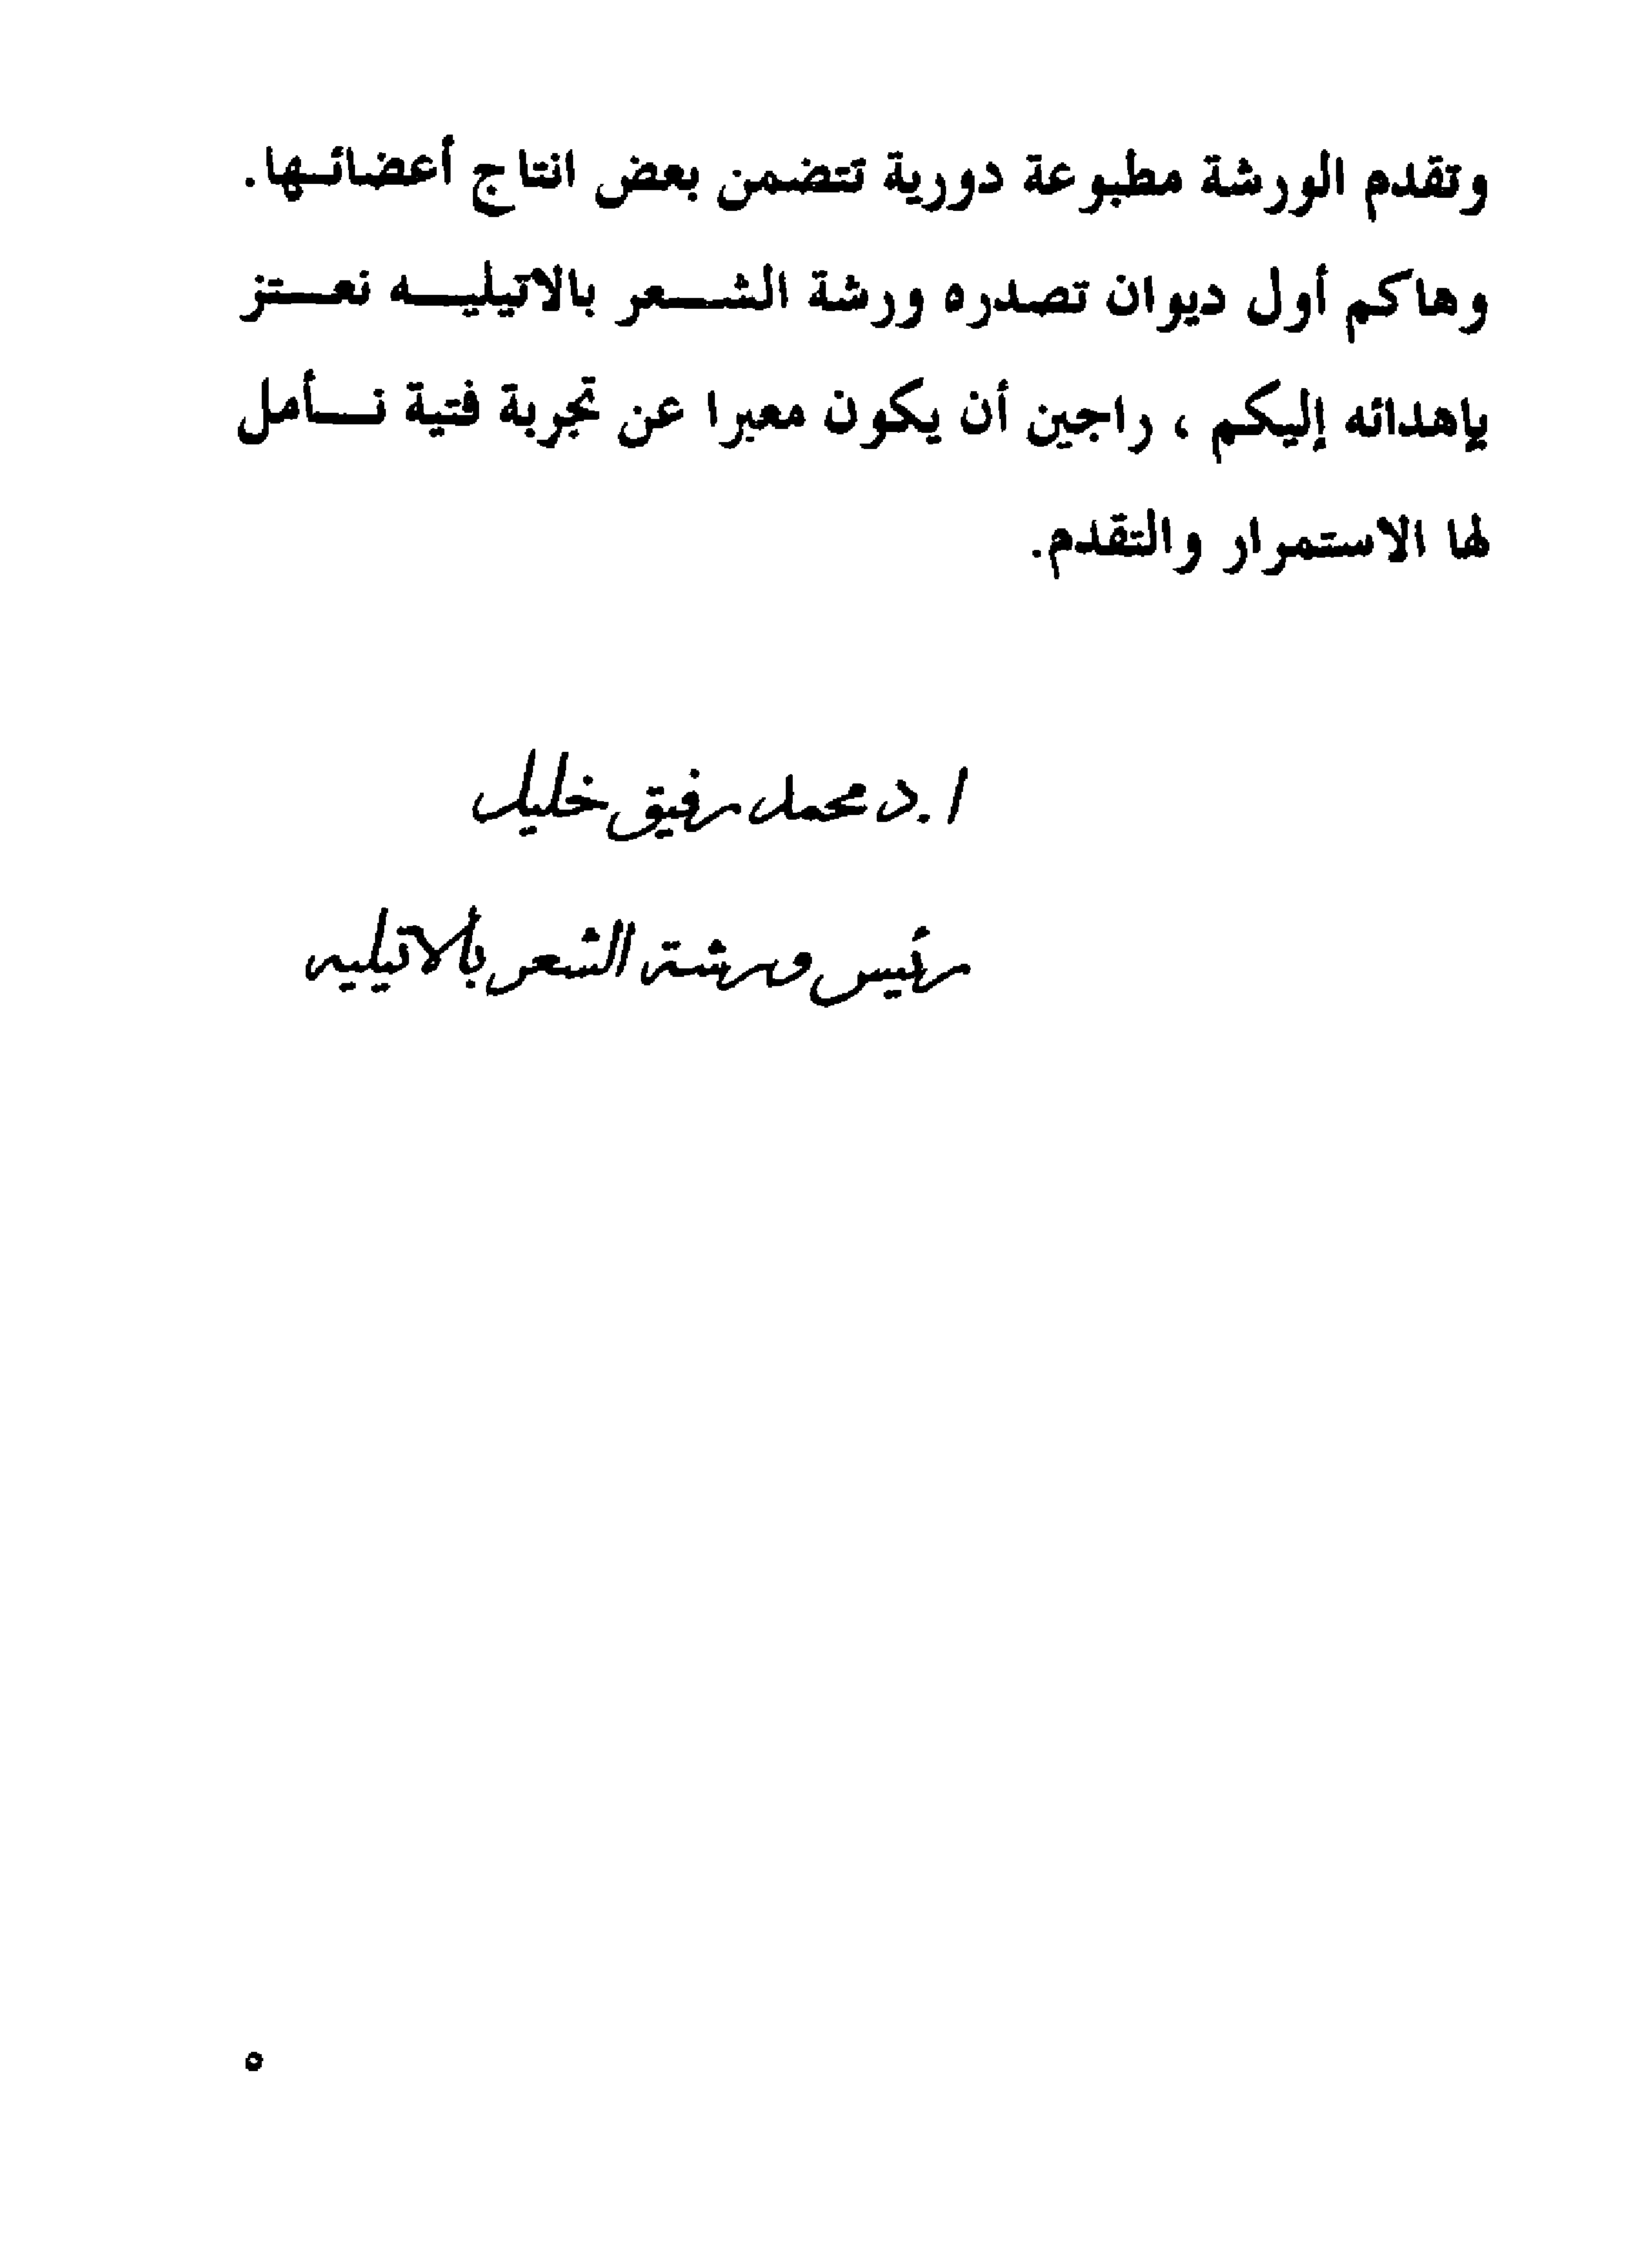 وتقدم الورشة مطبوعة دورية تتضمن بعض انتاج أعضائها.
وهاكم أول ديوان تصدره ورشة الشعر بالاتيليه نعتز
بإهدائه إليكم ، راجين أن يكون معبرا عن تجربة فتية نأمل
لها الاستمرار والتقدم.
ا.د محمد رفيق خليل
رئيس ورشة الشعر بالاتيليه
٥